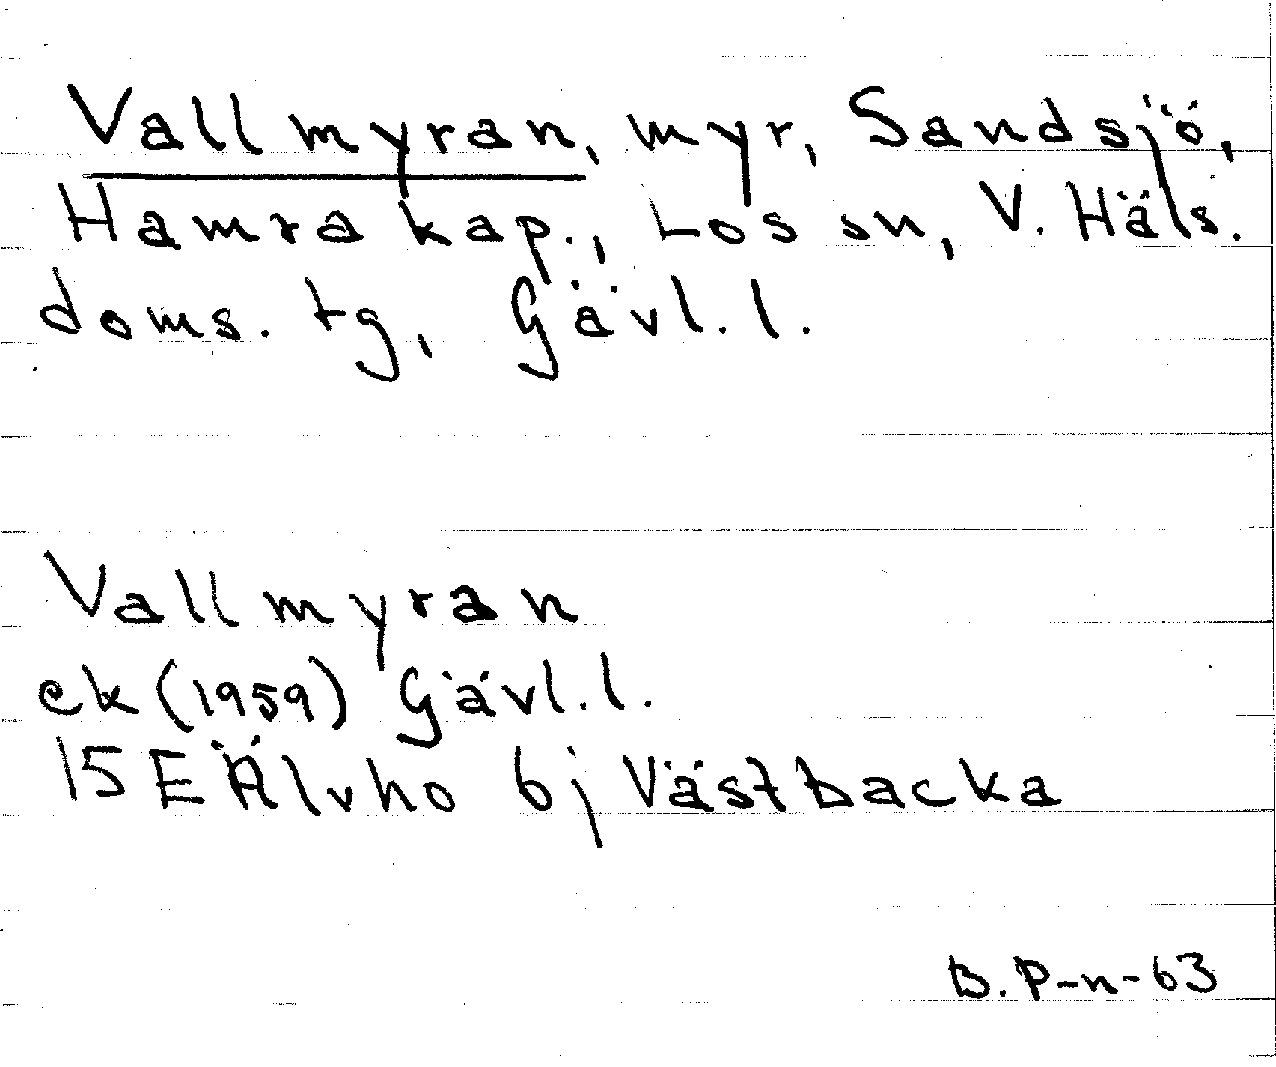 Vallmyran, myr, Sandsjö,
Hamra kap., Los sn, V. Häls.
doms. tg, Gävl. l.
Vallmyran
ek (1959) Gävl. l.
15 E Älvho 6j Västbacka
B. P-n-63